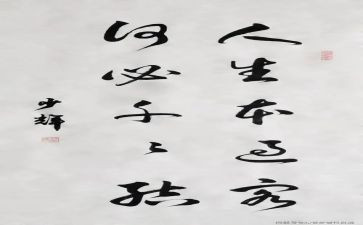 人生本过客
何必千々结
少辉